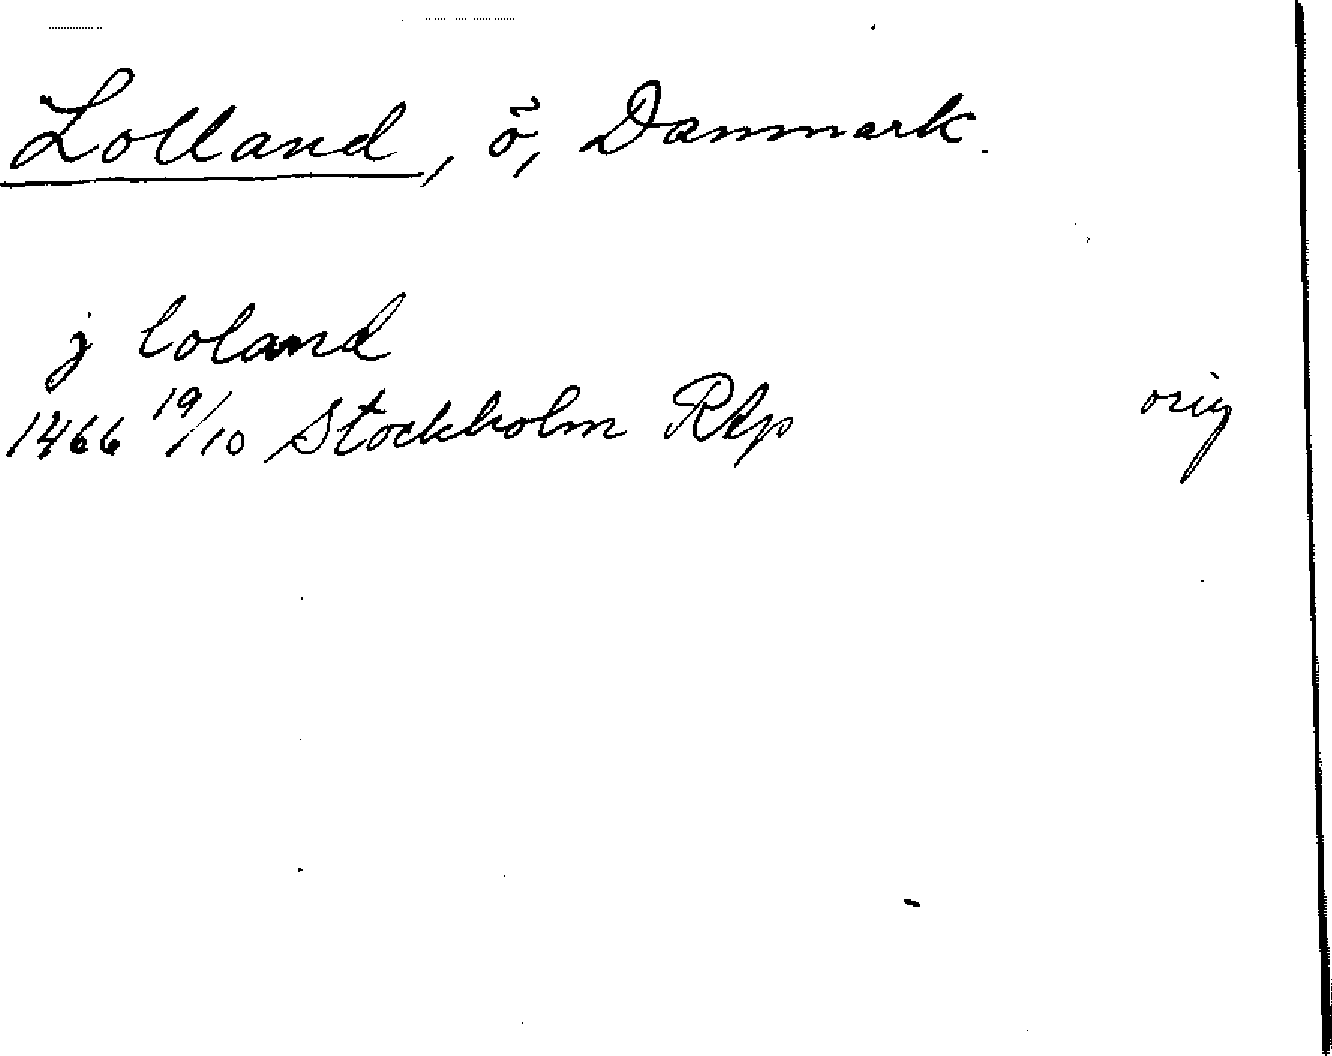 Lolland, ö, Danmark.
j loland
1466 19/10 Stockholm RAp orig